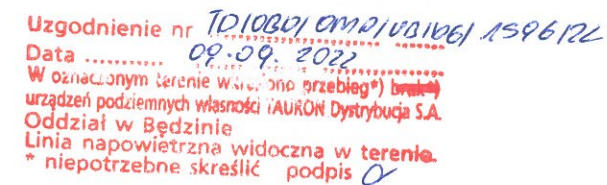 Uzgodnienie nr TD/OBD/OMD/UB/06/1596/22
Data .......... 09.09.2022
W oznaczonym terenie wkreślono przebieg*) brak*)
urządzeń podziemnych własności TAURON Dystrybucja S.A.
Oddział w Będzinie
Linia napowietrzna widoczna w terenie.
* niepotrzebne skreślić podpis